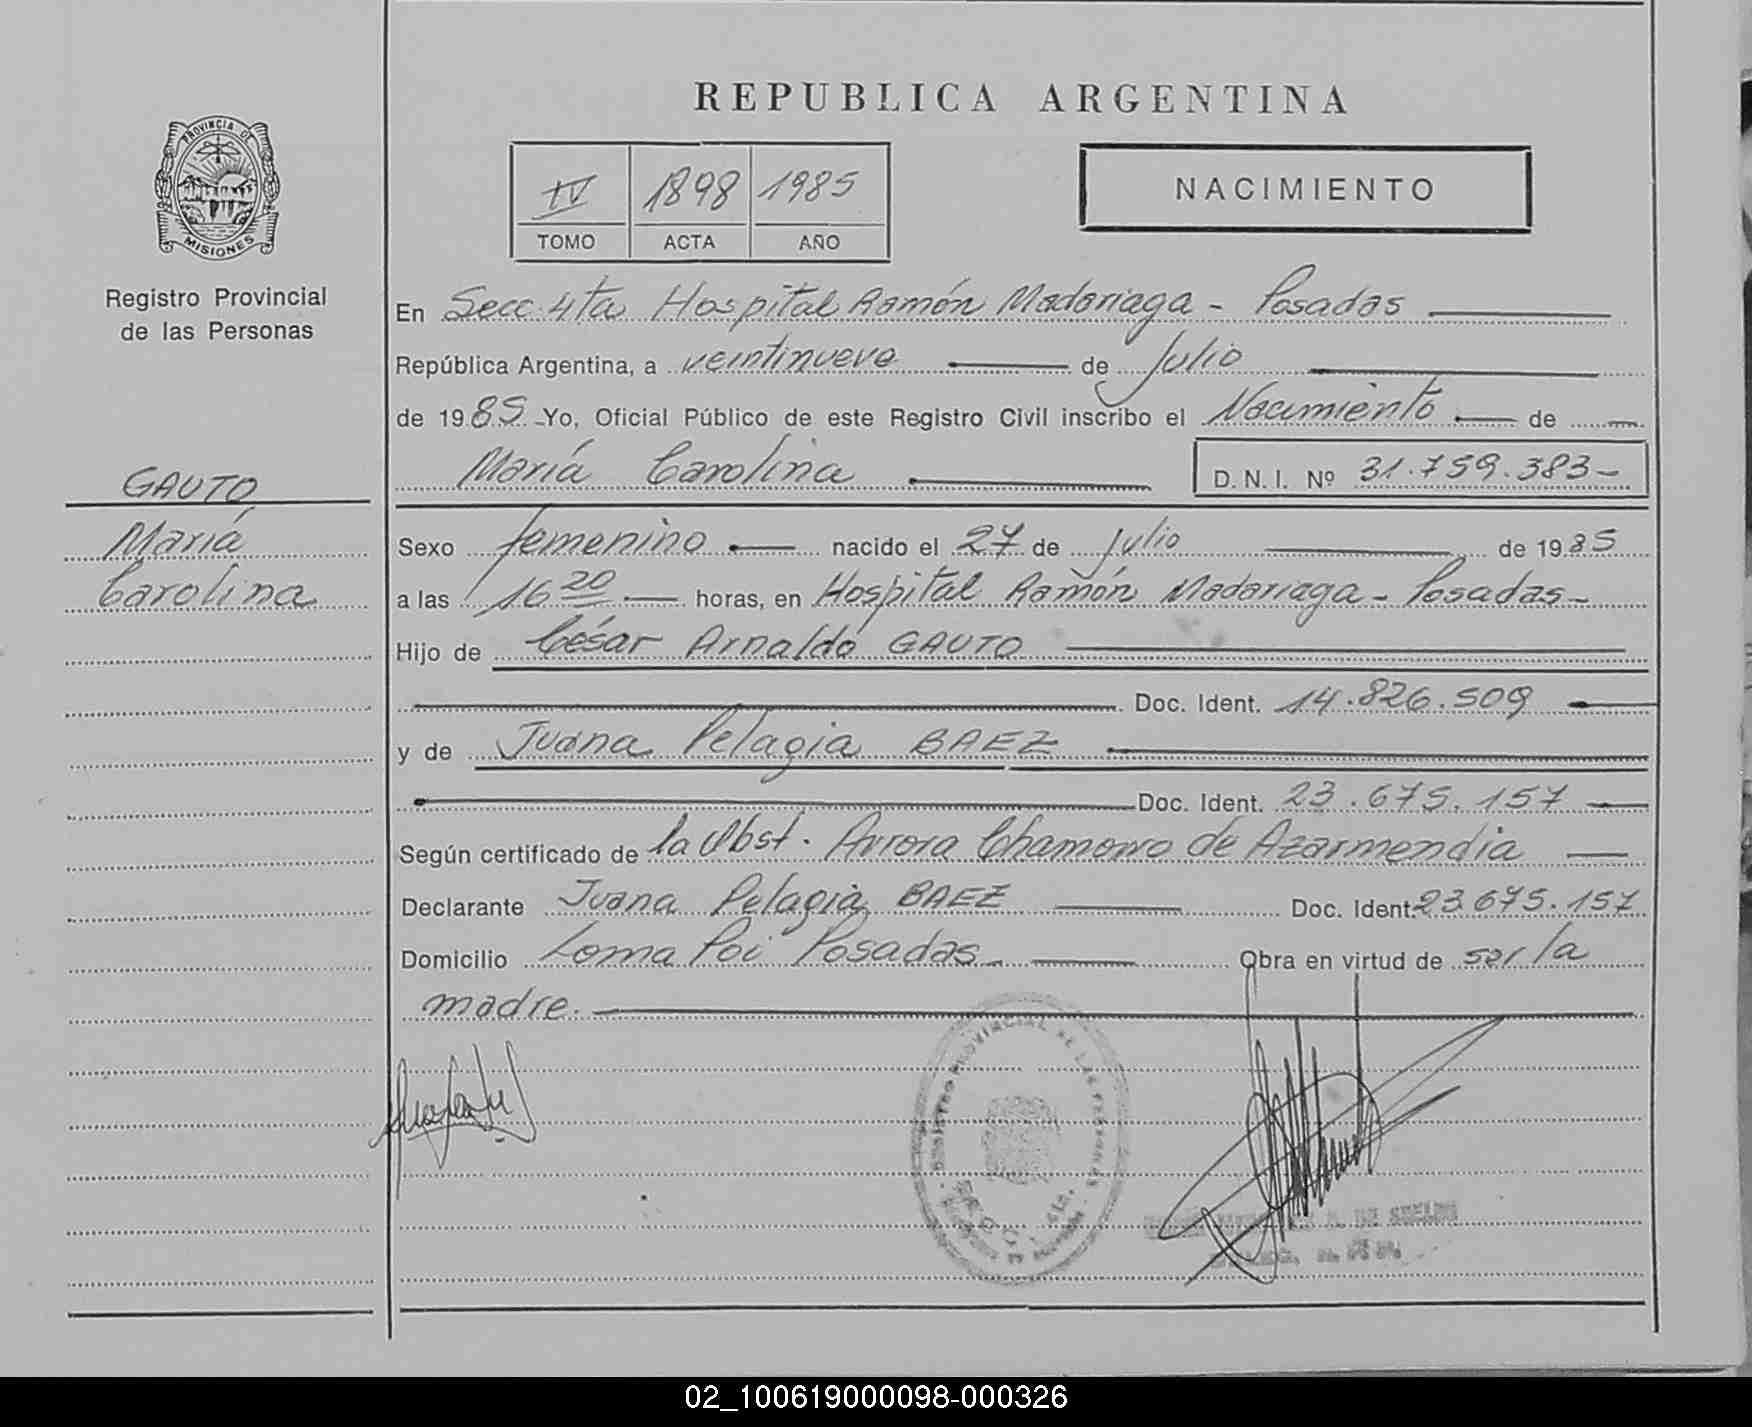 REPUBLICA ARGENTINA
PROVINCIA DE
MISIONES
Registro Provincial
de las Personas
IV 1898 1985
TOMO ACTA AÑO
NACIMIENTO
En Secc. 4ta Hospital Ramón Madariaga - Posadas
República Argentina, a veintinueve de Julio
de 1985 Yo, Oficial Público de este Registro Civil inscribo el Nacimiento de
María Carolina D. N. I. Nº 31.759.383-
GAUTO
María
Carolina
Sexo femenino nacido el 27 de julio de 1985
a las 16 20 horas, en Hospital Ramón Madariaga - Posadas -
Hijo de César Arnaldo GAUTO
Doc. Ident. 14.826.509
y de Juana Pelagia BAEZ
Doc. Ident. 23.675.157
Según certificado de la Obst. Aurora Chamorro de Azarmendia
Declarante Juana Pelagia BAEZ Doc. Ident. 23.675.157
Domicilio Loma Poi Posadas Obra en virtud de ser la
madre.
REGISTRO PROVINCIAL DE LAS PERSONAS
02_100619000098-000326